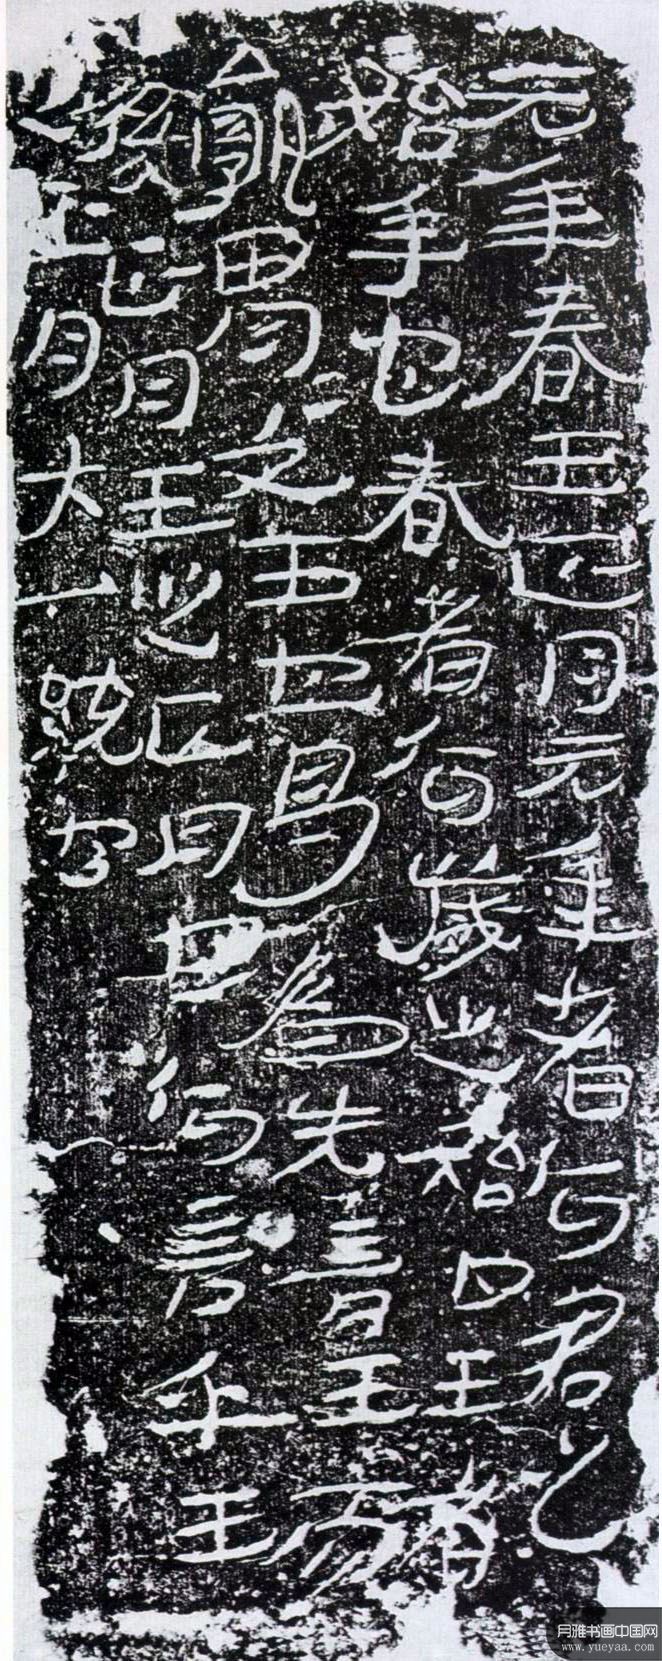 元年春王正月元年者何君之
始年也春者何歲之始也王者
孰胃〻文王也曷爲先言王而
後正月王之正月也何言乎王
正月大一統也
月雅书画中国网
www.yueyaa.com